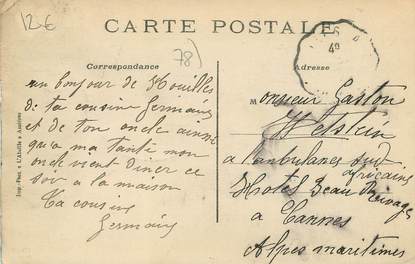 12€
CARTE POSTALE
78)
Correspondance
Adresse
un bonjour de Houilles
de ta cousine Germaine
et de ton oncle ainsi
qu'a ma tante mon
oncle vient diner ce
soir a la maison
Ta cousine
Germaine
Monsieur Gaston
Wetstein
a l'ambulance sud
africaine
Hotel Beau Rivage
a Cannes
Alpes maritimes